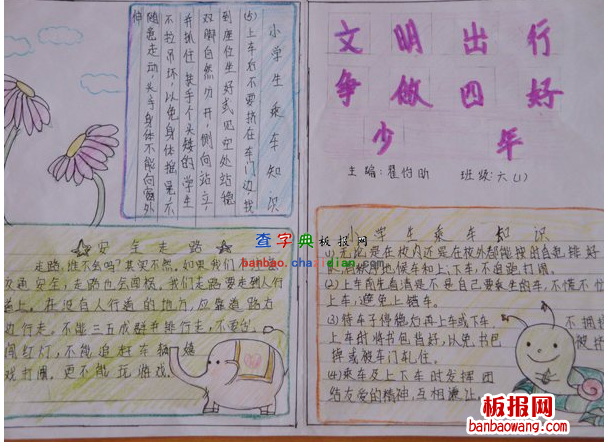 文明出行
争做四好
少年
主编:翟怡昕 班级:六(1)
小学生乘车知识
(5)上车后不要挤在车门边,找
到座位坐好或见空处站稳,
双脚自然分开,侧向站立,
并抓住扶手,个头矮的学生
不拉吊环,以免身体摇晃,
随意走动,头手身体不能向窗外
伸
安全走路
走路,谁不会吗?其实不然。如果我们不
交通安全,走路也会困祸。我们走路要走到人行
道上。在没有人行道的地方,应靠道路右
边行走。不能三五成群并排行走,不要
闯红灯,不能追赶车辆嬉
戏打闹。更不能玩游戏。
小学生乘车知识
(1)无论是在校内还是在校外都能按的自觉排好
队,
候车和上、下车,不追跑打闹。
(2)上车前先看清是不是自己要乘坐的车,不慌不忙
上车,避免上错车。
(3)待车子停稳后再上车或下车,不拥挤
上车时将书包背好,以免书包
挤或被车门轧住。
(4)乘车及上下车时发挥团
结友爱的精神,互相谦让
查字典板报网
banbao.chazidian.com
板报网
banbaowang.com